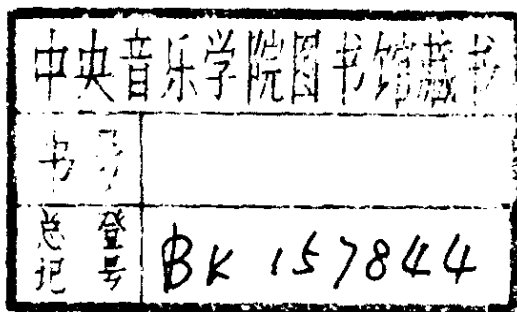 中央音乐学院图书馆藏书
书号
总登记号 BK 157844